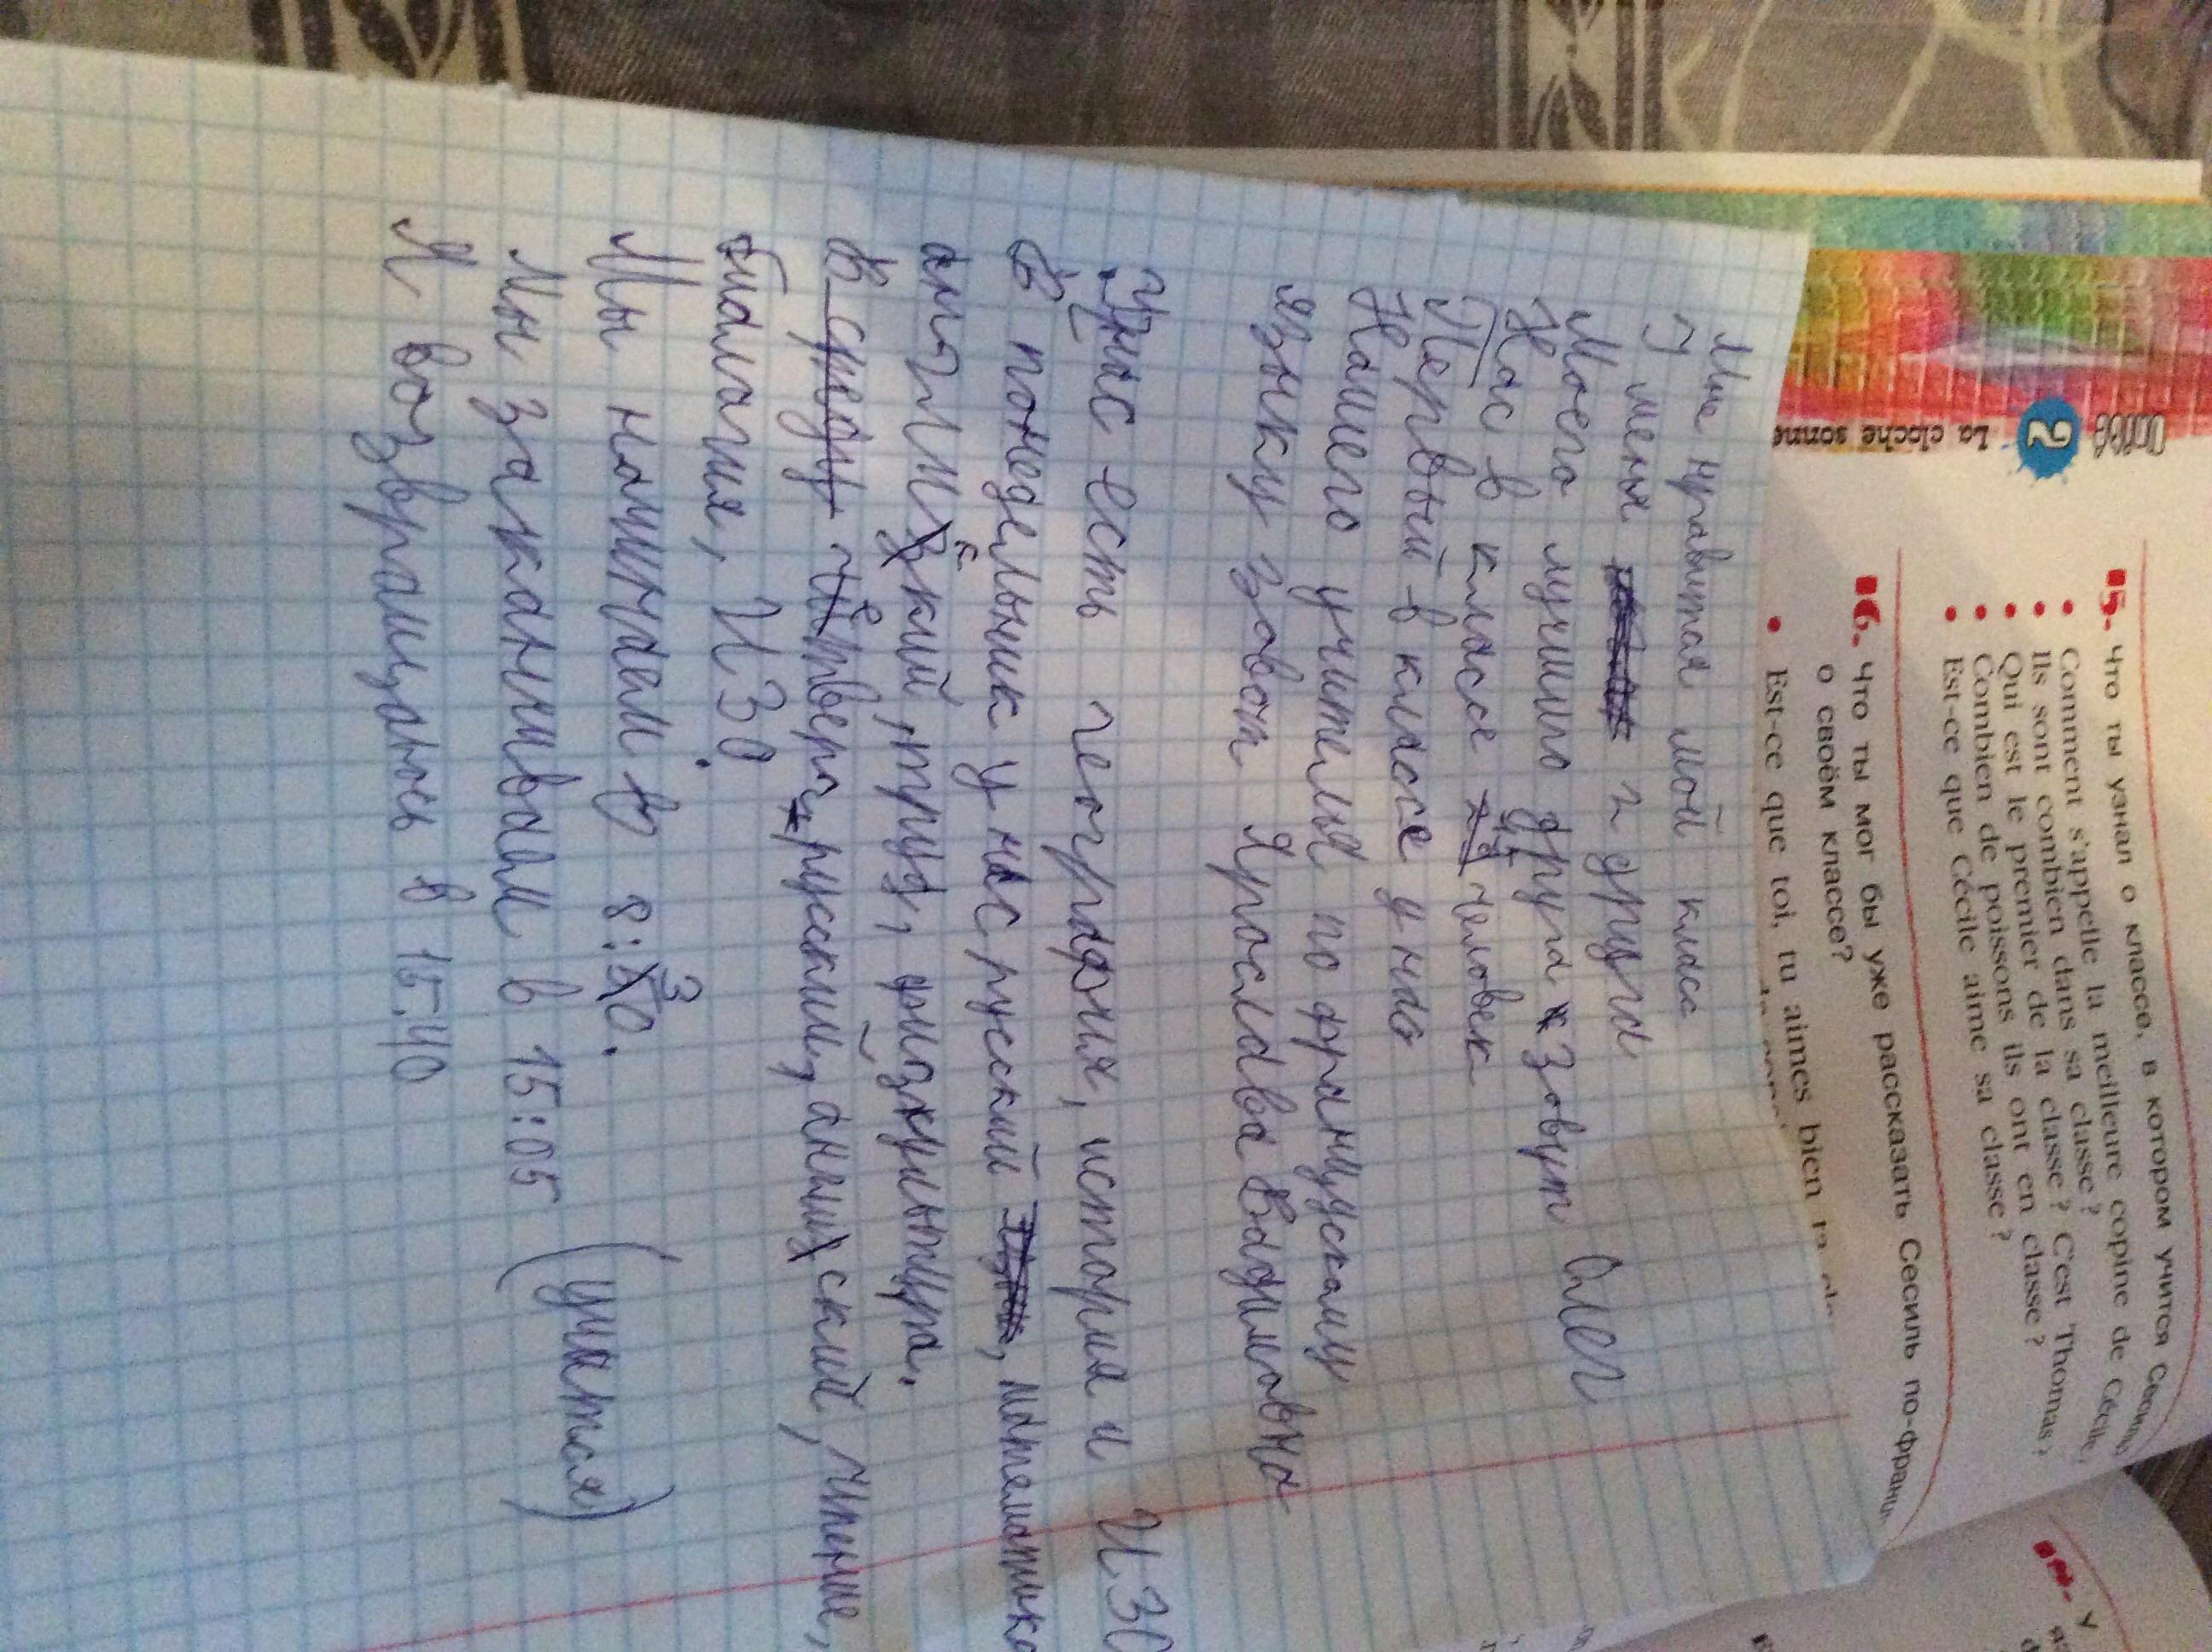 Unité 2
La cloche sonne
5. Что ты узнал о классе, в котором учится
Comment s'appelle la meilleure copine de Cécile
Ils sont combien dans sa classe ?
Qui est le premier de la classe ? C'est Thomas ?
Combien de poissons ils ont en classe ?
Est-ce que Cécile aime sa classe ?
6. Что ты мог бы уже рассказать Сесиль по-франц
о своём классе?
Est-ce que toi, tu aimes bien ta
Мне нравится мой класс
У меня 2 друга
Моего лучшего друга зовут Олег
Нас в классе человек
Первый в классе у нас
Нашего учителя по французскому
языку зовот Ярослава Вадимовна
У нас есть география, история и ИЗО
В понедельник у нас русский, математика
английский, труд, физкультура.
В четверг русский, английский, чтение,
биалагия, ИЗО.
Мы начинаем в 8:30.
Мы заканчиваем в 15:05 (учатся)
Я возвращаюсь в 15:40